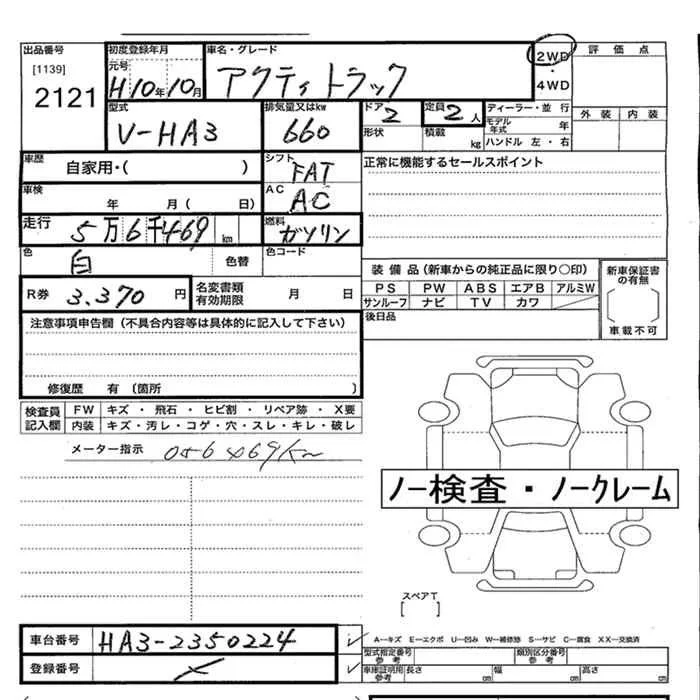 出品番号 初度登録年月 車名・グレード 2WD 評価点
[1139] 元号 アクティトラック ・
2121 H10年10月 4WD
型式 排気量又はkw ドア 定員 ディーラー・並行 外装 内装
V-HA3 660 2 2人 モデル年式 年
形状 積載 kg ハンドル 左・右
車歴 自家用・( ) シフト FAT 正常に機能するセールスポイント
車検 年 月( 日) AC AC
走行 5万6千469km 燃料 ガソリン
色 白 色替 色コード
装備品(新車からの純正品に限り○印) 新車保証書の有無
R券 3.370円 名変書類有効期限 月 日 PS PW ABS エアB アルミW
サンルーフ ナビ TV カワ 車載不可
注意事項申告欄(不具合内容等は具体的に記入して下さい) 後日品
修復歴 有(箇所 )
検査員記入欄 FW キズ・飛石・ヒビ割・リペア跡・X要
内装 キズ・汚レ・コゲ・穴・スレ・キレ・破レ
メーター指示 056469km
ノー検査・ノークレーム
スペアT
[ ]
車台番号 HA3-2350224 A―キズ E―エクボ U―凹み W―補修跡 S―サビ C―腐食 XX―交換済
型式指定番号 参考 類別区分番号 参考
登録番号 車庫証明用 参考 長さ cm 幅 cm 高さ cm